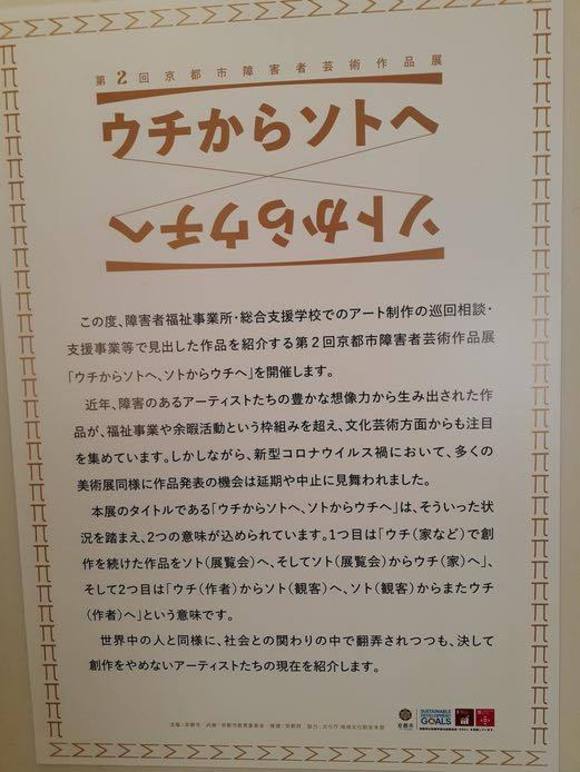 第2回京都市障害者芸術作品展
ウチからソトへ
ソトからウチへ
この度、障害者福祉事業所・総合支援学校でのアート制作の巡回相談・
支援事業等で見出した作品を紹介する第2回京都市障害者芸術作品展
「ウチからソトへ、ソトからウチへ」を開催します。
近年、障害のあるアーティストたちの豊かな想像力から生み出された作
品が、福祉事業や余暇活動という枠組みを超え、文化芸術方面からも注目
を集めています。しかしながら、新型コロナウイルス禍において、多くの
美術展同様に作品発表の機会は延期や中止に見舞われました。
本展のタイトルである「ウチからソトへ、ソトからウチへ」は、そういった状
況を踏まえ、2つの意味が込められています。1つ目は「ウチ(家など)で創
作を続けた作品をソト(展覧会)へ、そしてソト(展覧会)からウチ(家)へ」、
そして2つ目は「ウチ(作者)からソト(観客)へ、ソト(観客)からまたウチ
(作者)へ」という意味です。
世界中の人と同様に、社会との関わりの中で翻弄されつつも、決して
創作をやめないアーティストたちの現在を紹介します。
京都市
SUSTAINABLE
DEVELOPMENT
GOALS